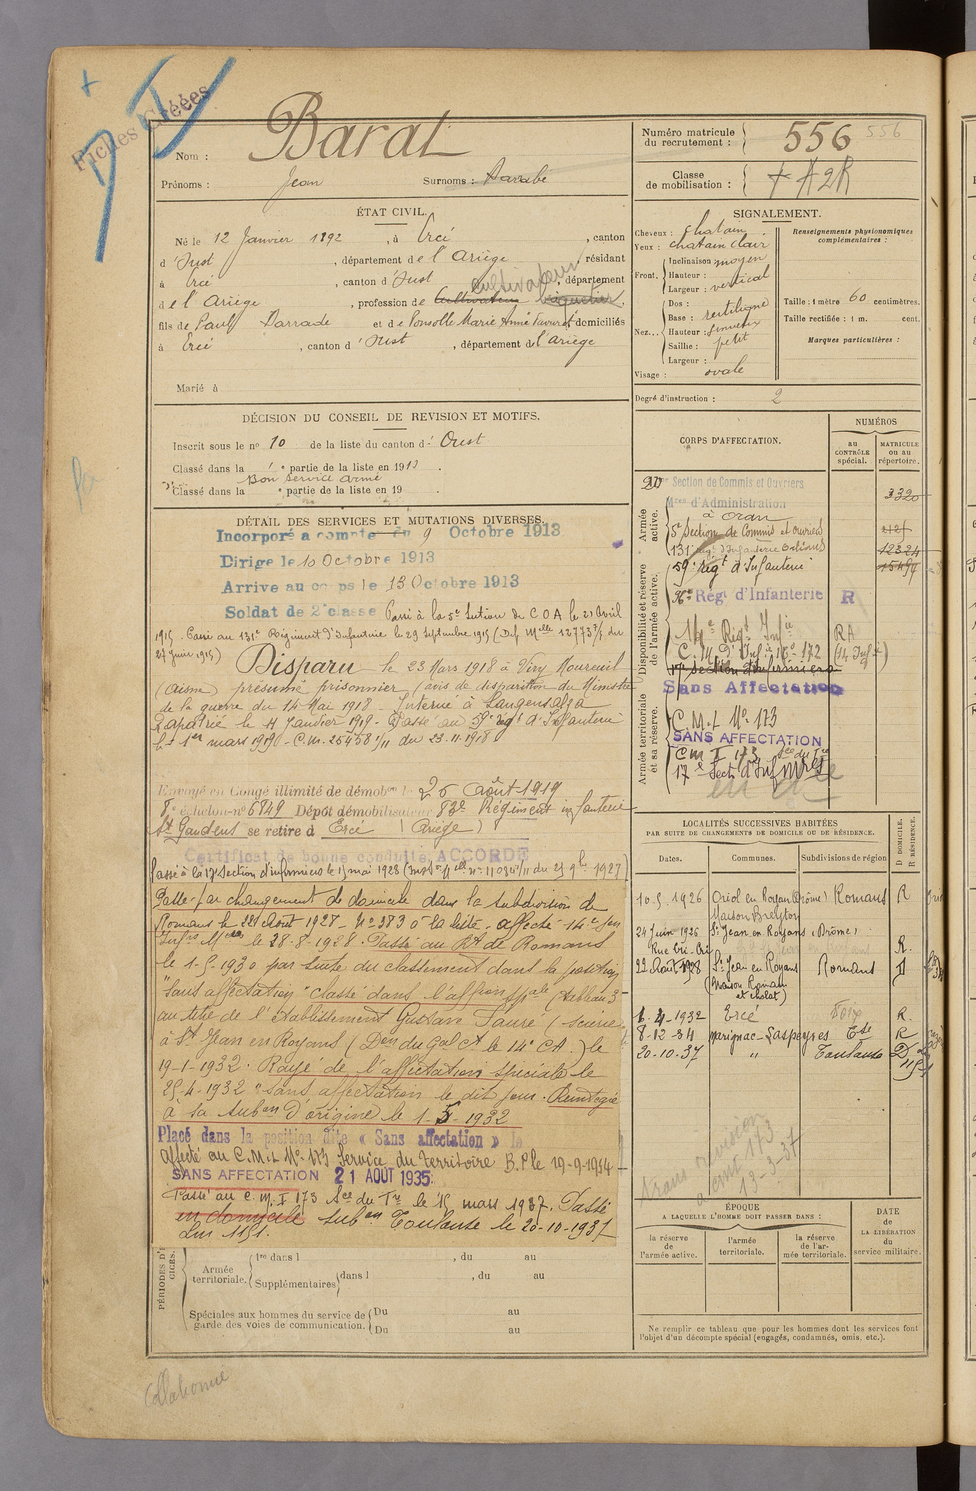 Fiches Créées
Nom : Barat
Prénoms : Jean Surnoms :
Numéro matricule du recrutement : 556 556
Classe de mobilisation :
ÉTAT CIVIL.
Né le 12 Janvier 1892, à Ercé, canton
d'Oust, département de l'Ariège, résidant
à Ercé, canton d'Oust, département
de l'Ariège, profession de Cultivateur cultivateur
fils de Paul Darrade et de Ponsolle Marie Anne, domiciliés
à Ercé, canton d'Oust, département de l'Ariège
Marié à
SIGNALEMENT.
Cheveux : chatain
Yeux : chatain clair
Front. Inclinaison moyen
Hauteur : vertical
Largeur :
Nez... Dos : rectiligne
Base :
Hauteur : sinueux
Saillie : petit
Largeur :
Visage : ovale
Renseignements physionomiques complémentaires :
Taille : 1 mètre 60 centimètres.
Taille rectifiée : 1 m. cent.
Marques particulières :
Degré d'instruction : 2
DÉCISION DU CONSEIL DE REVISION ET MOTIFS.
Inscrit sous le n° 10 de la liste du canton d' Oust
Classé dans la 1 e partie de la liste en 1913.
Bon service armé
Classé dans la e partie de la liste en 19
DÉTAIL DES SERVICES ET MUTATIONS DIVERSES.
Incorporé à compter du 9 Octobre 1913
Dirigé le 10 Octobre 1913
Arrivé au corps le 13 Octobre 1913
Soldat de 2e classe Passé à la 5e Section de C O A le 21 Avril
1915. Passé au 131e Régiment d'Infanterie le 29 Septembre 1915
27 Juin 1915)
Disparu le 23 Mars 1918 à Viry Noureuil
(Aisne) présumé prisonnier (avis de disparition du Ministre
de la guerre du 14 Mai 1918 - Interné à Langensalza
Rapatrié le 11 Janvier 1919 - Passé au 59e régt d'Infanterie
le 1er mars 1919 - C.M. 25458 1/11 du 23.11.1918
Envoyé en Congé illimité de démobon le 26 Août 1919
8e échelon n° 6849 Dépôt démobilisateur 83e Régiment infanterie
St Gaudens se retire à Ercé (Ariège)
Certificat de bonne conduite ACCORDÉ
Passé à la 17e Section d'infirmiers le 1 mai 1928
Passé par changement de domicile dans la subdivision de
Romans le 22 Août 1927 - N° 383 à la liste. affecté 14e
le 28-8-1928. Passé au Rt de Romans
le 1-5-1930 par suite du classement dans la position
"sans affectation" classé dans l'affon spale (tableau 3
au titre de l'établissement Gustave Fauré (scierie
à St Jean en Royans (Don du Gal Ct le 14e CA.) le
19-1-1932. Rayé de l'affectation spéciale le
25-4-1932 "sans affectation le dit jour. Réintégré
à sa subon d'origine le 1-5-1932
Placé dans la position dite « Sans affectation » le
affecté au C.M.I. N° 173 Service du territoire B.P. le 19-9-1934
SANS AFFECTATION 21 AOUT 1935
Passé au C.M.I 173 Sce du Tre le 15 mars 1937. Passé
en domicile subon Toulouse le 20-10-1937
CORPS D'AFFECTATION.
NUMÉROS
au CONTRÔLE spécial.
MATRICULE ou au répertoire.
Armée active.
20e Section de Commis et Ouvriers
Mres d'Administration
à Oran
3320
5e Section de Commis et Ouvriers
131e régt d'Infanterie Orléans
12224
Disponibilité et réserve de l'armée active.
59e régt d'Infanterie
15494
Régt d'Infanterie R
14e Régt Infie RA
C.M. D'Infie N° 172 (14 Inf.)
17e Section d'Infirmiers
Sans Affectation
Armée territoriale et sa réserve.
C.M.I N° 173
SANS AFFECTATION
C M I 173
17e Secton d'Infirmiers
LOCALITÉS SUCCESSIVES HABITÉES
PAR SUITE DE CHANGEMENTS DE DOMICILE OU DE RÉSIDENCE.
Dates. Communes. Subdivisions de région
D DOMICILE. R RÉSIDENCE.
10.5.1926 Oriol en Royans (Drôme) Romans R
Maison Breyton
24 Juin 1926 St Jean en Royans (Drôme)
Rue Cri-Cri R.
22 Août 1928 St Jean en Royans Romans D
(maison Romain et cholat)
1.4-1932 Ercé Foix R.
8-12-34 Marignac-Laspeyres Tse R
20-10-37 " Toulouse D
13-3-37
ÉPOQUE
A LAQUELLE L'HOMME DOIT PASSER DANS :
la réserve de l'armée active.
l'armée territoriale.
la réserve de l'armée territoriale.
DATE de LA LIBÉRATION du service militaire.
Ne remplir ce tableau que pour les hommes dont les services font
l'objet d'un décompte spécial (engagés, condamnés, omis, etc.).
Armée territoriale.
1re dans l , du au
Supplémentaires dans l , du au
Spéciales aux hommes du service de garde des voies de communication.
Du au
Du au
Collationné